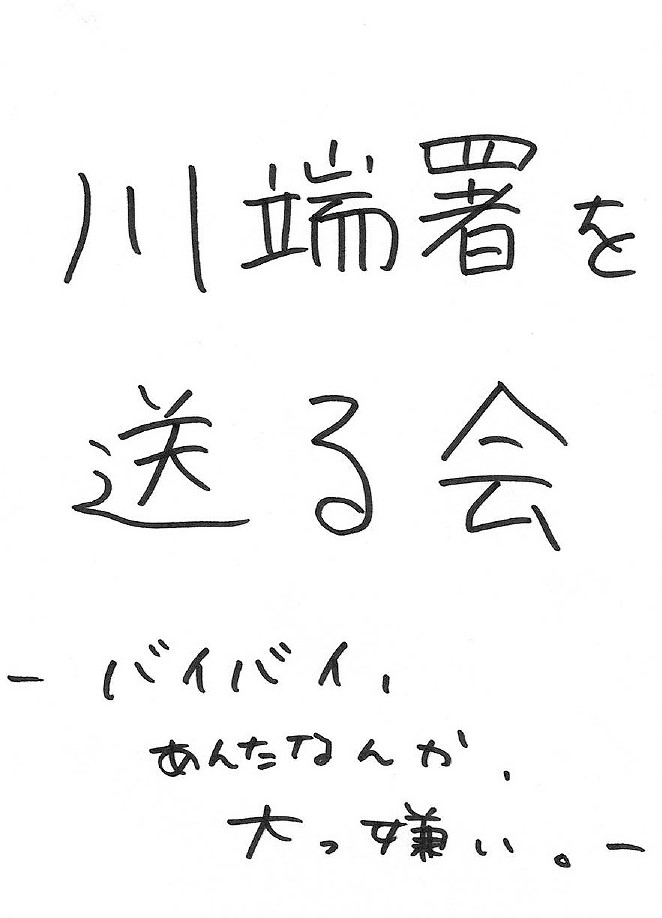 川端署を
送る会
－バイバイ,
あんたなんか,
大っ嫌い。－